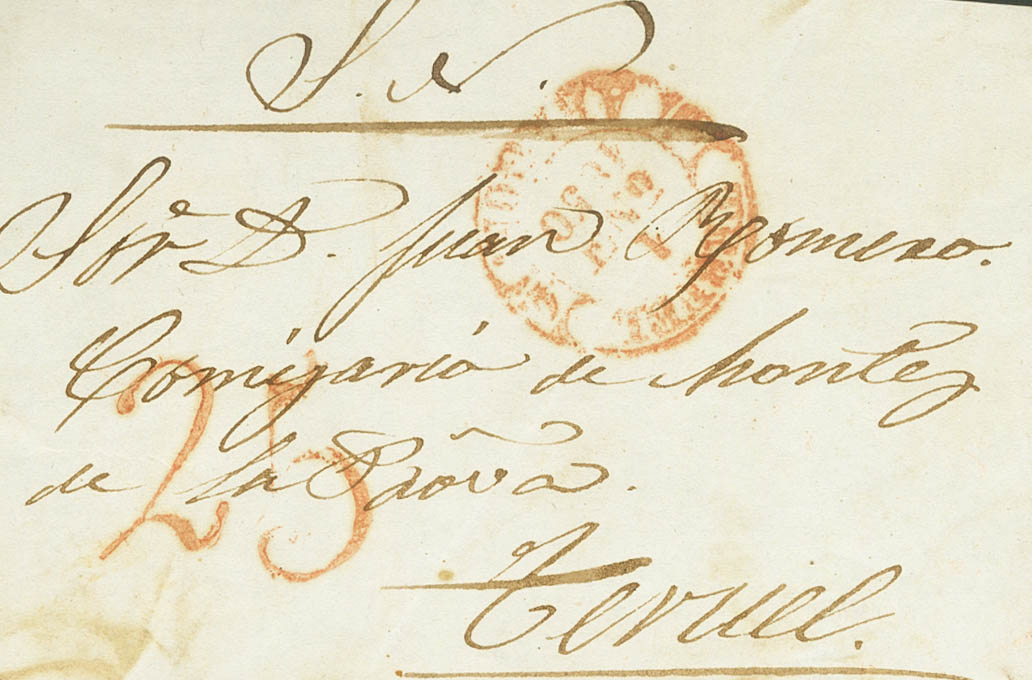 S. N.
Sor. D. Juan Romero.
Comisario de Montes
de la Prova.
Teruel.
25